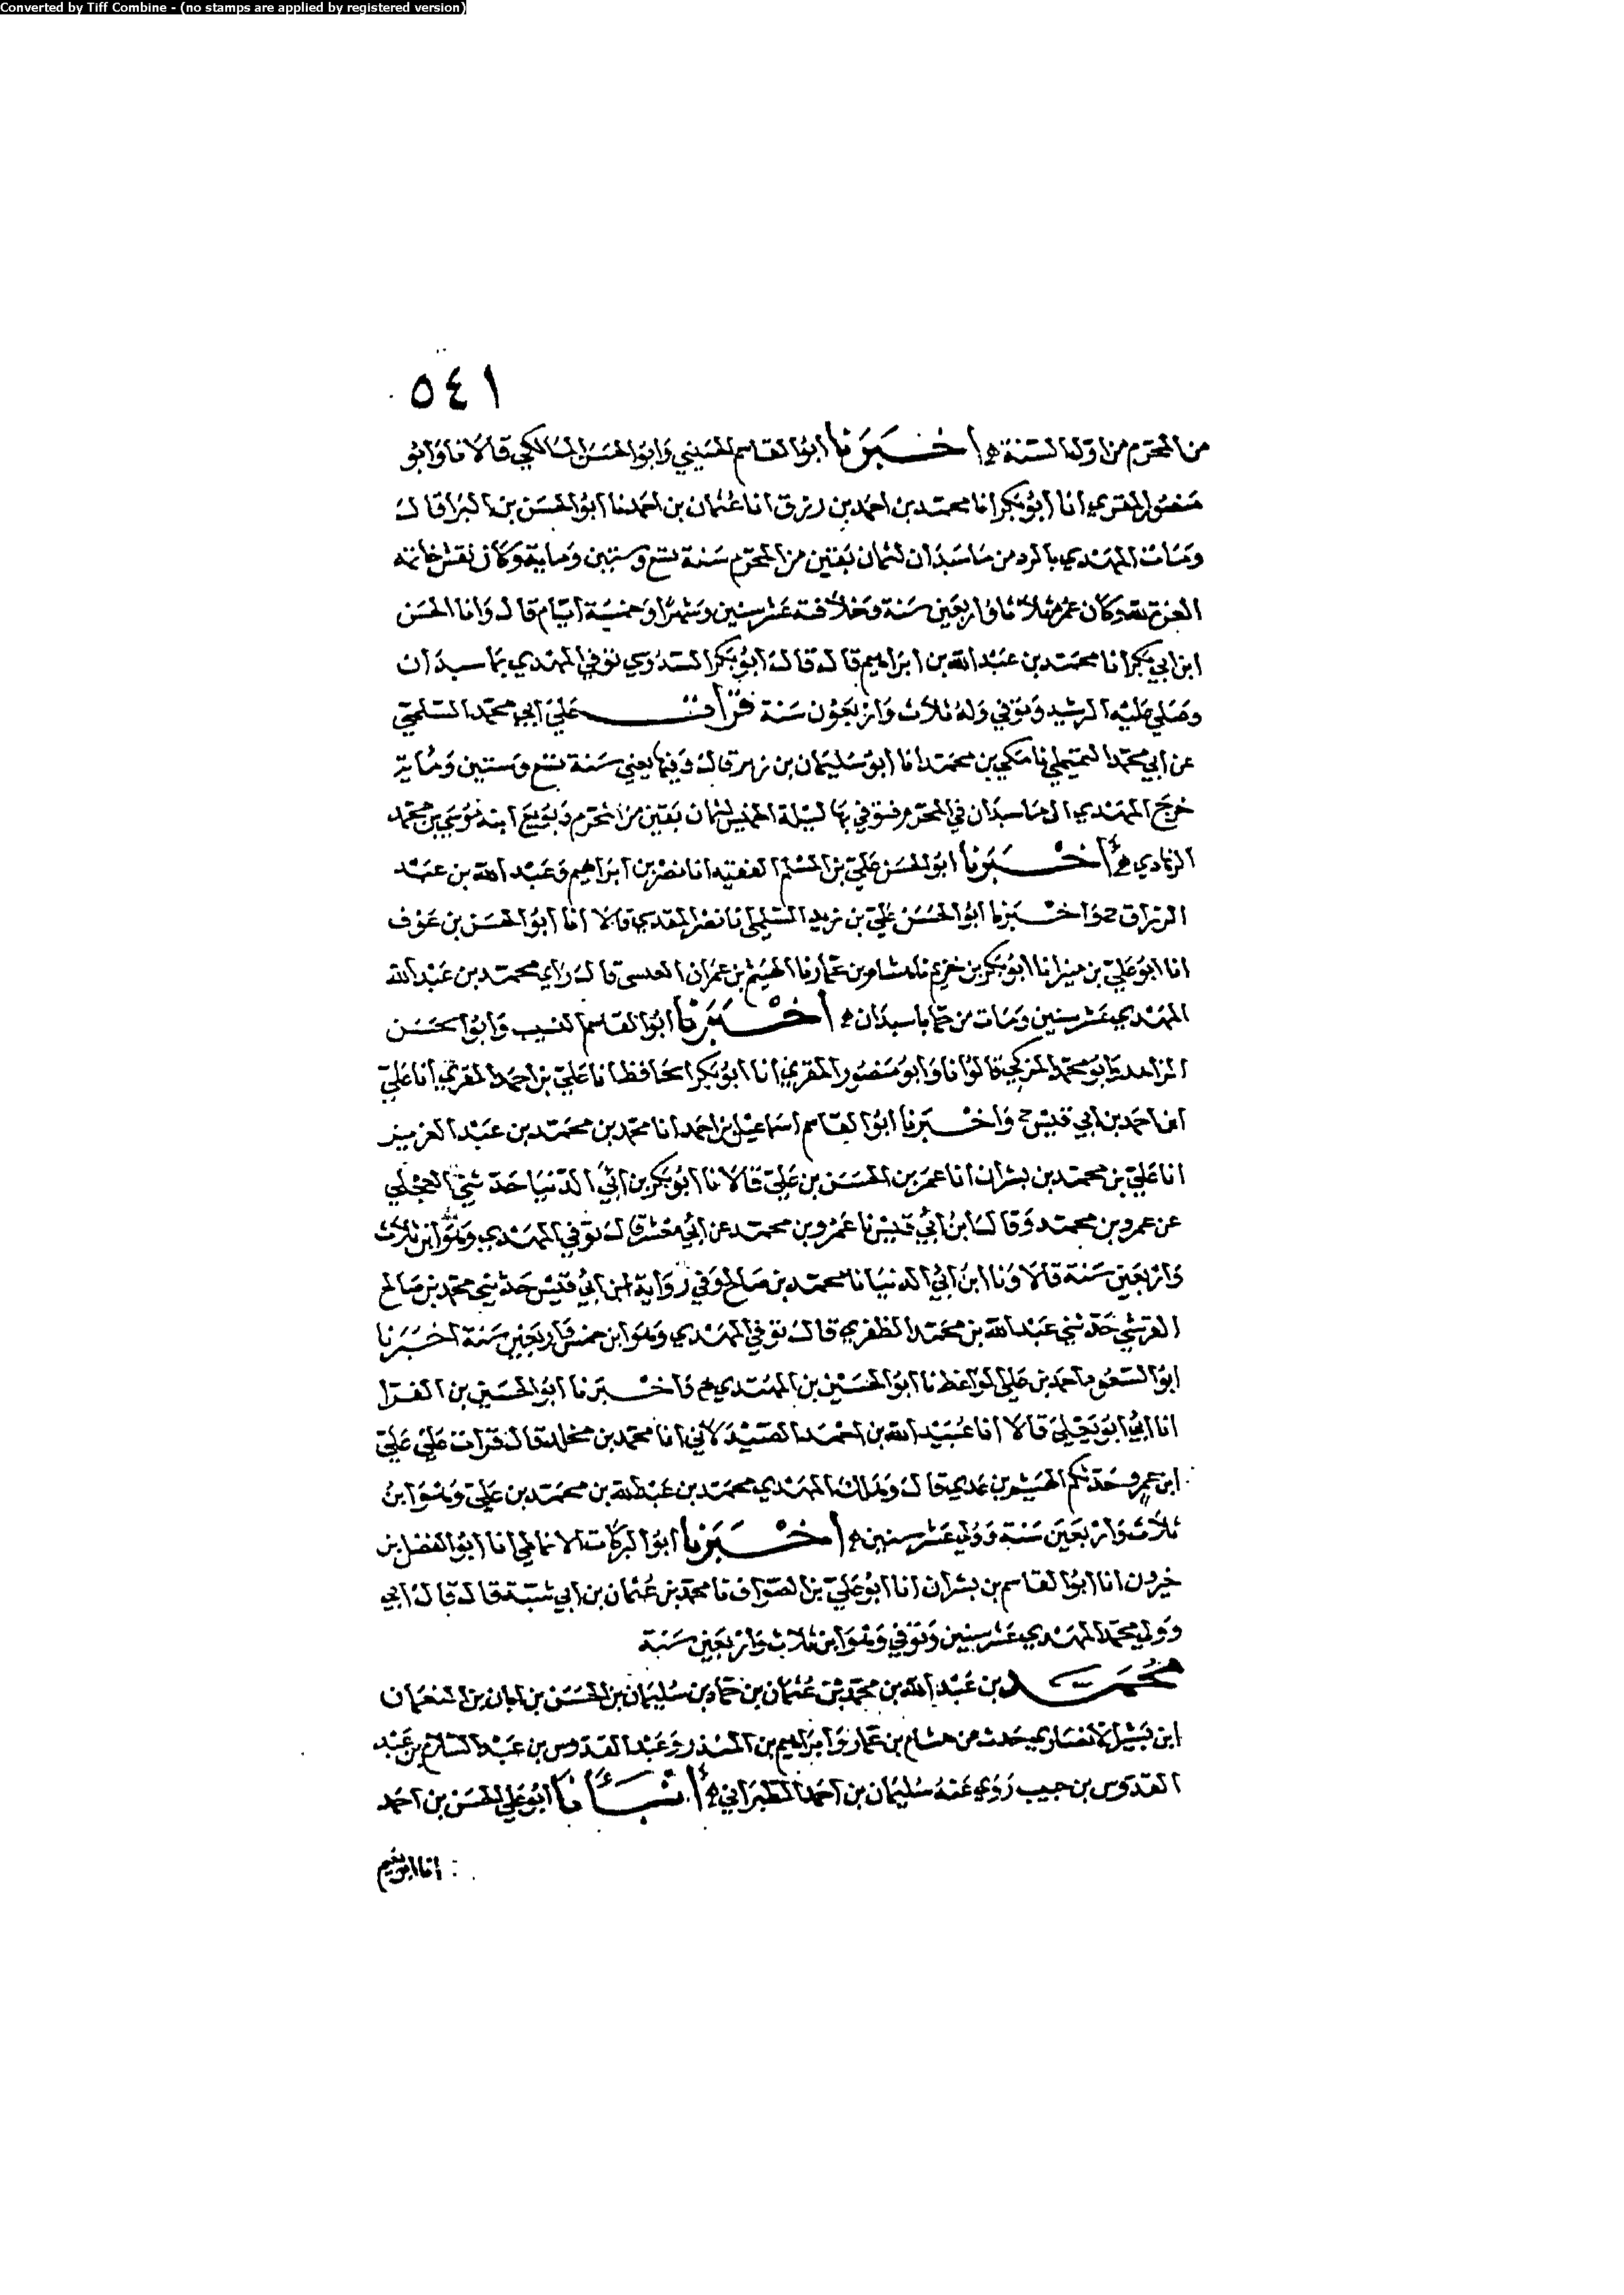 Converted by Tiff Combine - (no stamps are applied by registered version)
٥٤١
من المحرم من اول السنة اخبرنا ابو القاسم الحسيني وابو الحسن المالكي قالا نا وابو
منصور المقري انا ابو بكر انا محمد بن احمد بن رزق انا عثمان بن احمد نا ابو الحسن بن البرا قال
ومات المهدي بالرد من ماسبذان لثمان بقين من المحرم سنة تسع وستين وماية وكان نقش خاتمه
العزة لله وكان عمره ثلاثا واربعين سنة وخلافته عشر سنين وشهرا وخمسة ايام قال وانا الحسن
ابن ابي بكر انا محمد بن عبد الله بن ابراهيم قال قال ابو بكر السدوسي توفي المهدي بماسبذان
وصلي عليه الرشيد وتوفي وله ثلاث واربعون سنة قرات على ابي محمد السلمي
عن ابي محمد التميمي انا مكي بن محمد انا ابو سليمان بن زبر قال وفيها يعني سنة تسع وستين وماية
خرج المهدي الى ماسبذان في المحرم فتوفي بها ليلة الخميس لثمان بقين من المحرم وبويع ابنه موسى بن محمد
الهادي اخبرنا ابو الحسن علي بن المسلم الفقيه انا نصر بن ابراهيم وعبد الله بن عبد
الرزاق ح واخبرنا ابو الحسن علي بن زيد السلمي انا نصر المقدسي قالا انا ابو الحسن بن عوف
انا ابو علي بن منير انا ابو بكر بن خريم نا هشام بن عمار نا الهيثم بن عمران العبسي قال راي محمد بن عبد الله
المهدي عشر سنين ومات من حما باسبذان اخبرنا ابو القاسم النسيب وابو الحسن
الزاهد وابو محمد المزكي قالوا نا وابو منصور المقري انا ابو بكر الحافظ انا علي بن احمد المقري انا علي
ابن احمد بن ابي قيس ح واخبرنا ابو القاسم اسماعيل بن احمد انا محمد بن محمد بن عبد العزيز
انا علي بن محمد بن بشران انا عمر بن الحسن بن علي قالا نا ابو بكر بن ابي الدنيا حدثني العجلي
عن عمرو بن محمد وقال ابن ابي قيس نا عمرو بن محمد عن ابي معشر قال توفي المهدي وهو ابن ثلاث
واربعين سنة قالا ونا ابن ابي الدنيا نا محمد بن صالح وفي رواية ابن ابي قيس حدثني محمد بن صالح
القرشي حدثني عبد الله بن محمد الظفري قال توفي المهدي وهو ابن خمس واربعين سنة اخبرنا
ابو السعود احمد بن علي الواعظ نا ابو الحسين بن المهتدي ح واخبرنا ابو الحسين بن الفرا
انا ابي ابو يعلى قالا انا عبيد الله بن احمد الصيدلاني انا محمد بن مخلد قال قرات على علي
ابن عمرو حدثكم الهيثم بن عدي قال وهلك المهدي محمد بن عبد الله بن محمد بن علي وهو ابن
ثلاث واربعين سنة وولي عشر سنين اخبرنا ابو البركات الانماطي انا ابو الفضل بن
خيرون انا ابو القاسم بن بشران انا ابو علي بن الصواف نا محمد بن عثمان بن ابي شيبة قال قال ابي
وولي محمد المهدي عشر سنين وتوفي وهو ابن ثلاث واربعين سنة
محمد بن عبد الله بن محمد بن عثمان بن حماد بن سليمان بن الحسن بن ابان بن النعمان
ابن بشير الانصاري حدث عن هشام بن عمار وابراهيم بن المنذر وعبد القدوس بن عبد السلام بن عبد
القدوس بن حبيب روي عنه سليمان بن احمد الطبراني انبانا ابو علي الحسن بن احمد
انا ابو نعيم